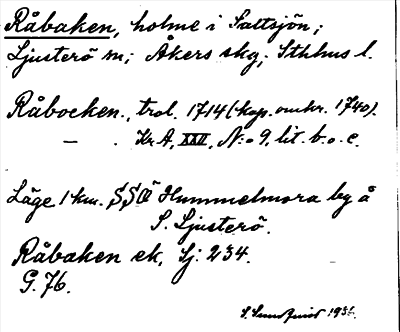 Råbaken, holme i Saltsjön;
Ljusterö sn; Åkers skg; Sthlms l.
Råbocken, trol. 1714 (kop. omkr. 1740).
— . Kr.A, XXII, N:o 9, lit. b. o. c.
Läge 1 km. SSO Hummelmora by å
S. Ljusterö.
Råbaken ek, Sj. 234.
G. 76.
S. Sundqvist 193